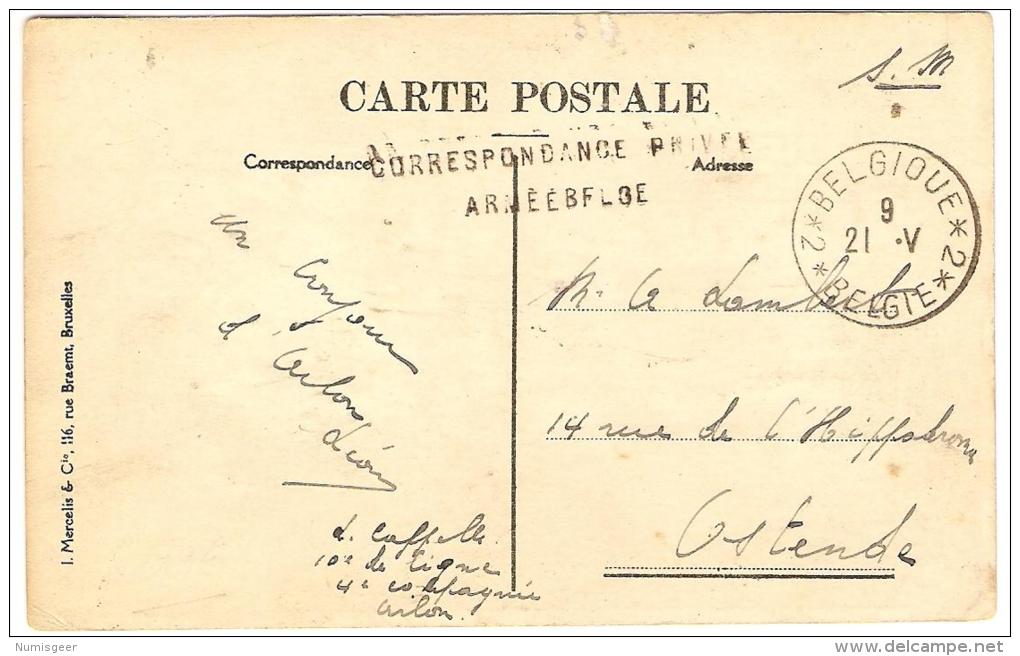 S. M
CARTE POSTALE
Correspondance
Adresse
CORRESPONDANCE PRIVEE
ARMÉEBELGE
*2* BELGIQUE *2* BELGIE
9
21 ·V
un bonjour
d'Arlon
Léon
L. Cappelle
10e de Ligne
4e compagnie
Arlon
Mr A Lambert
14 rue de l'Hippodrome
Ostende
I. Mercelis & Cie, 116, rue Braemt, Bruxelles
Numisgeer
www.delcampe.net